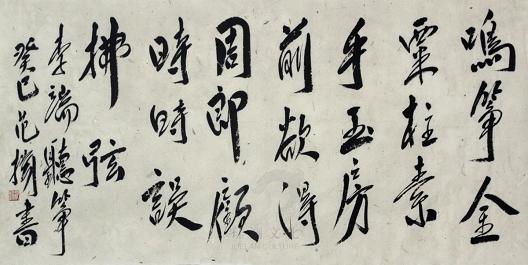 鳴筝金
粟柱素
手玉房
前欲得
周郎顧
時時誤
拂弦
李端聽筝
癸巳范揚書